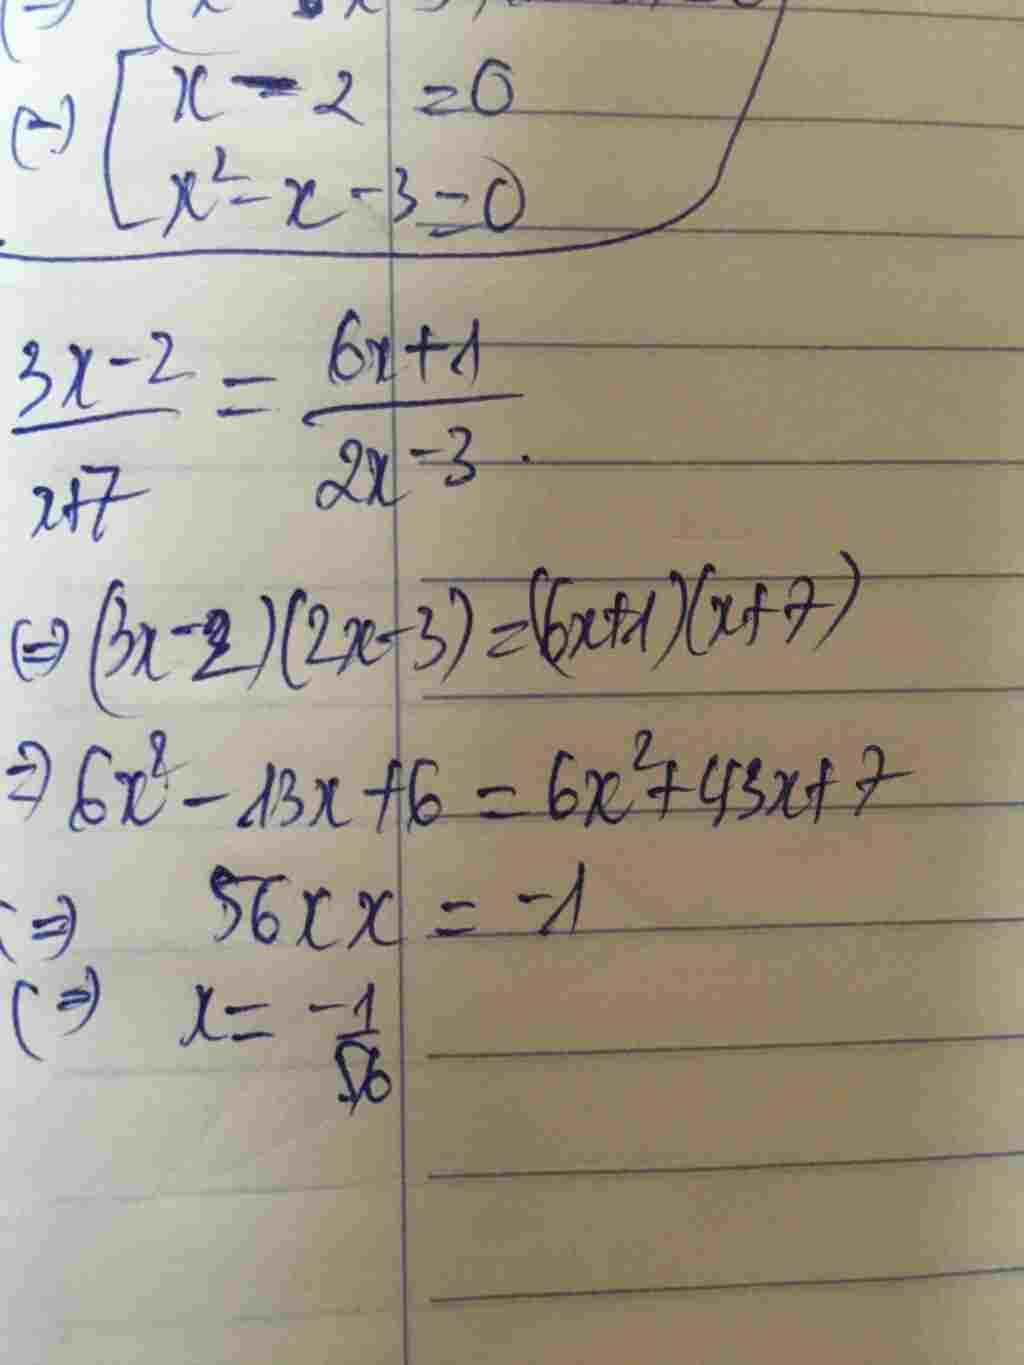 (=) [ x - 2 = 0
x² - x - 3 = 0
3x-2 / x+7 = 6x+1 / 2x-3 .
(=) (3x-2)(2x-3) = (6x+1)(x+7)
=) 6x² - 13x + 6 = 6x² + 43x + 7
(=) 56x x = -1
(=) x = -1/56